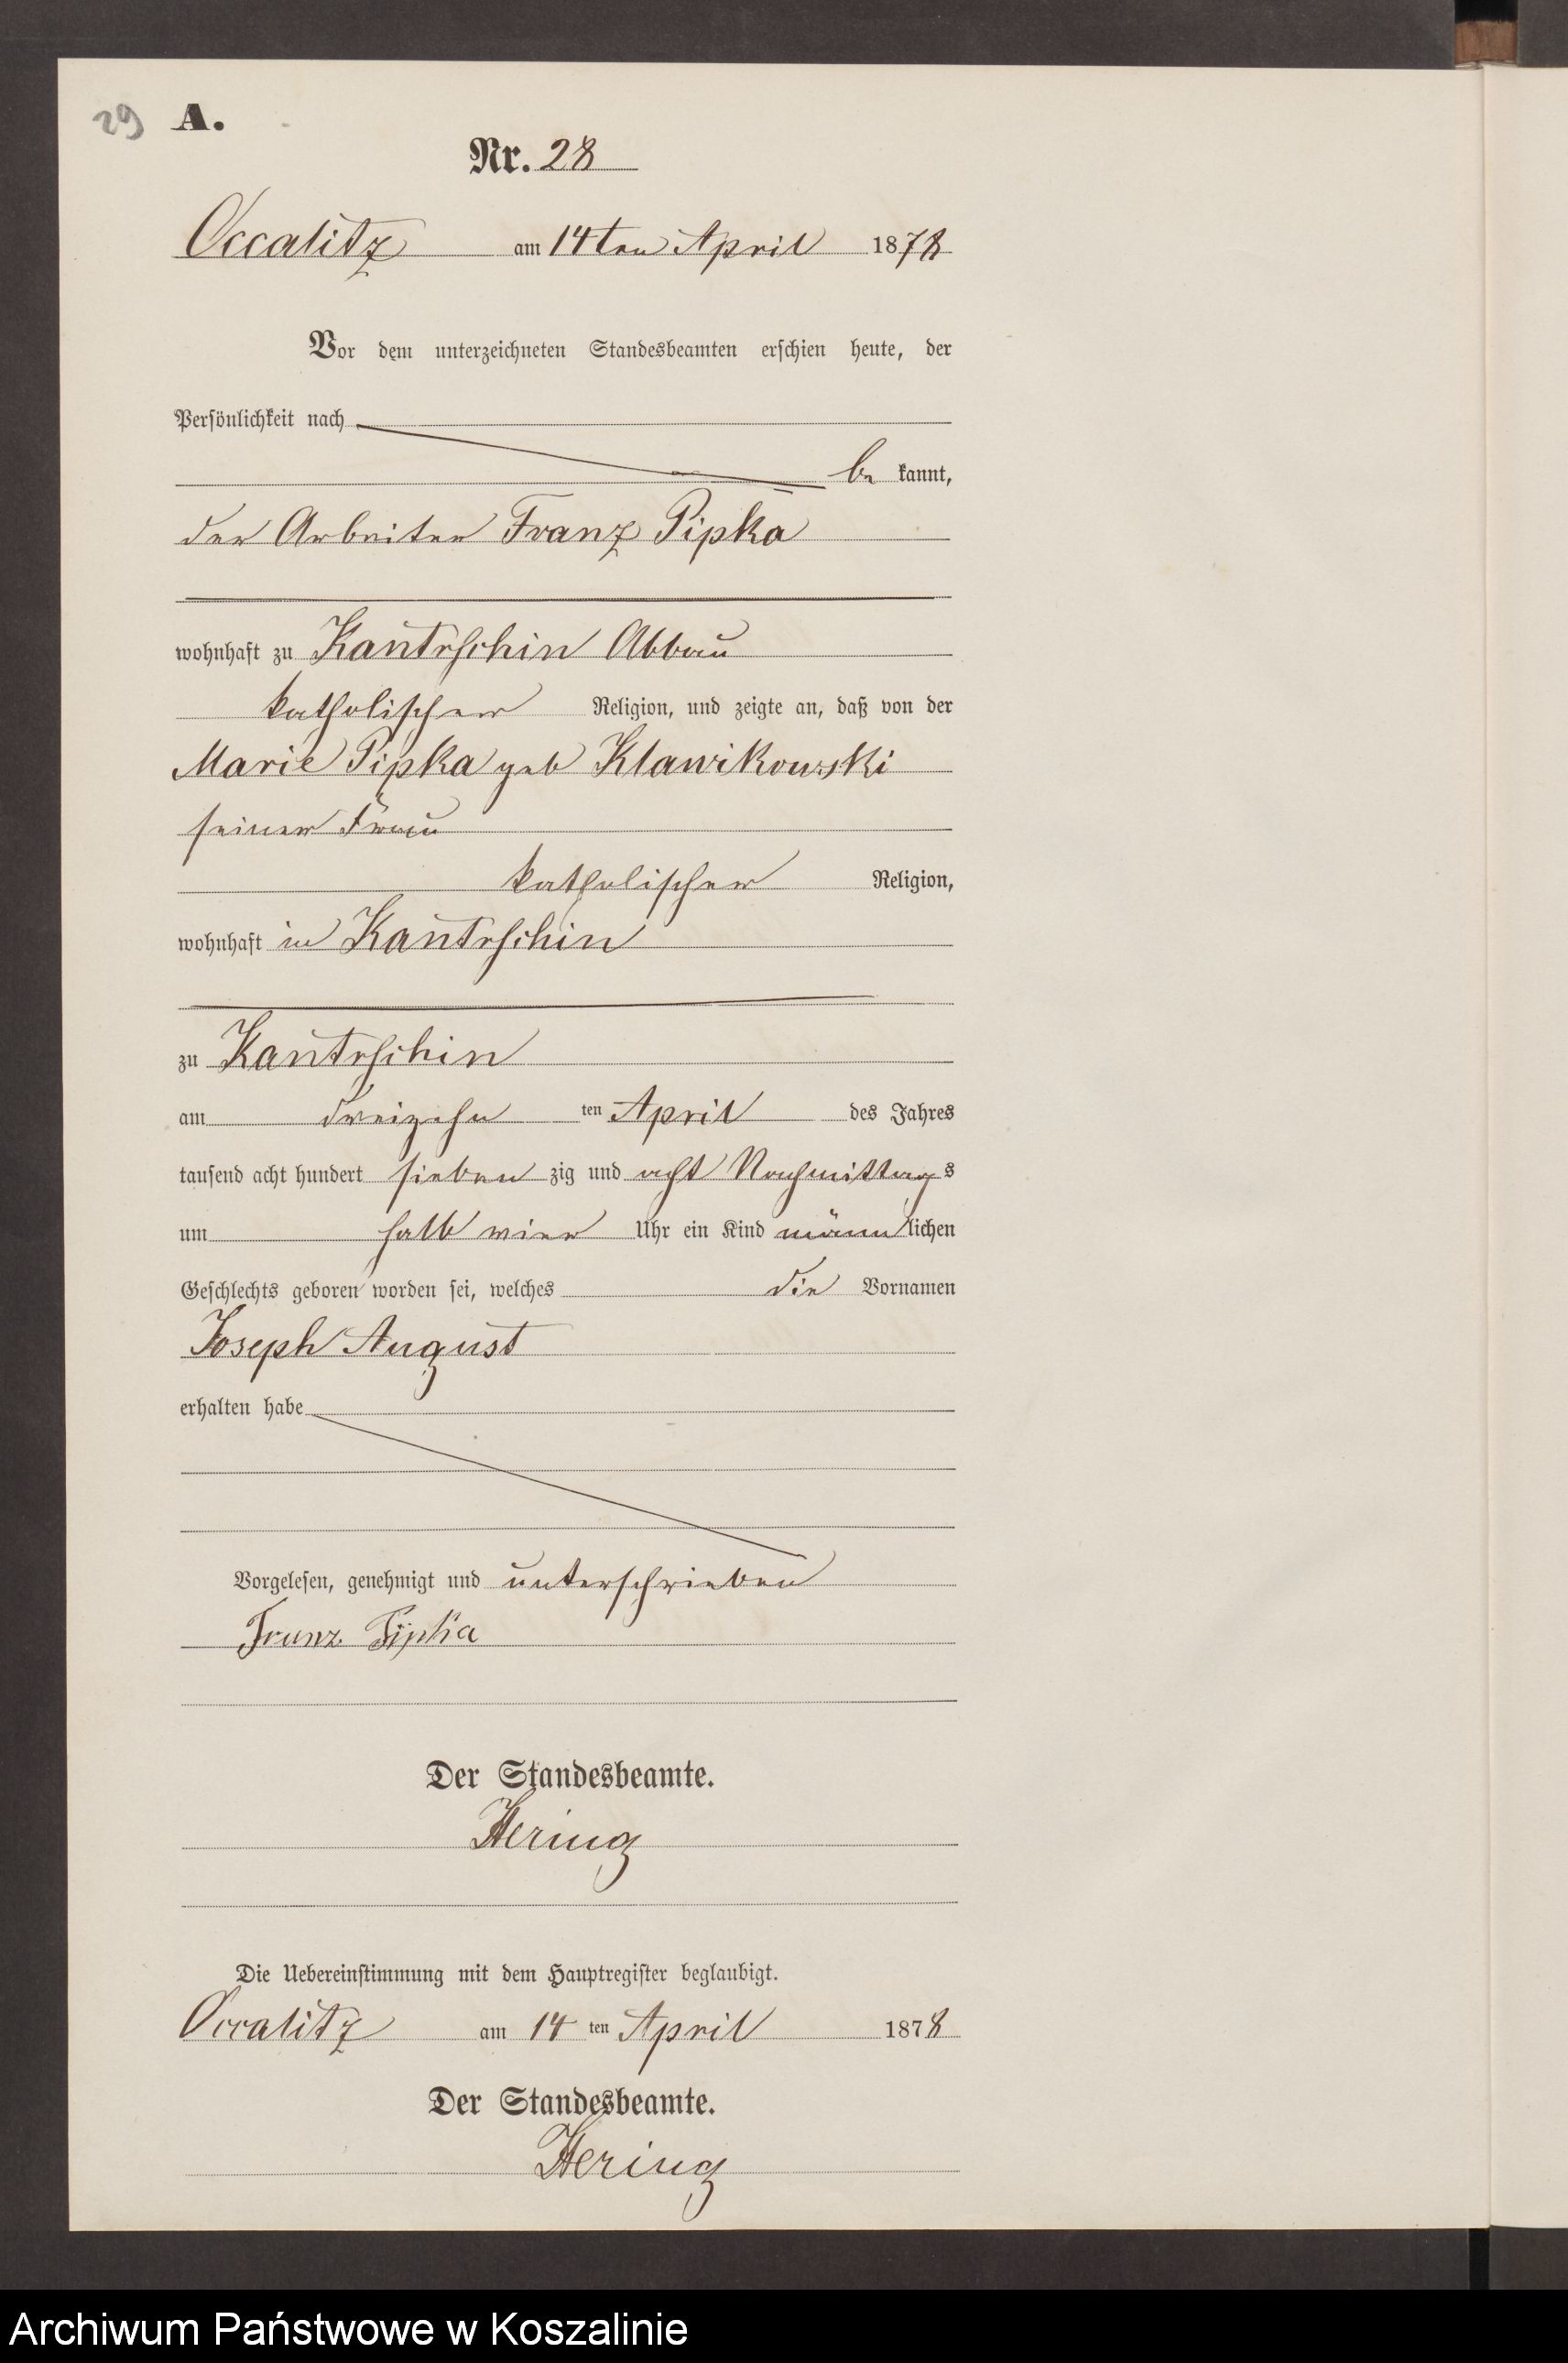 29 A.
Nr. 28
Occalitz am 14ten April 1878
Vor dem unterzeichneten Standesbeamten erschien heute, der
Persönlichkeit nach
be kannt,
der Arbeiter Franz Pipka
wohnhaft zu Kantrschin Abbau
katholischer Religion, und zeigte an, daß von der
Marie Pipka geb Klawikowski
seiner Frau
katholischer Religion,
wohnhaft in Kantrschin
zu Kantrschin
am dreizehn ten April des Jahres
tausend acht hundert sieben zig und acht Nachmittags
um halb vier Uhr ein Kind männlichen
Geschlechts geboren worden sei, welches die Vornamen
Joseph August
erhalten habe
Vorgelesen, genehmigt und unterschrieben
Franz Pipka
Der Standesbeamte.
Hering
Die Uebereinstimmung mit dem Hauptregister beglaubigt.
Occalitz am 14 ten April 1878
Der Standesbeamte.
Hering
Archiwum Państwowe w Koszalinie